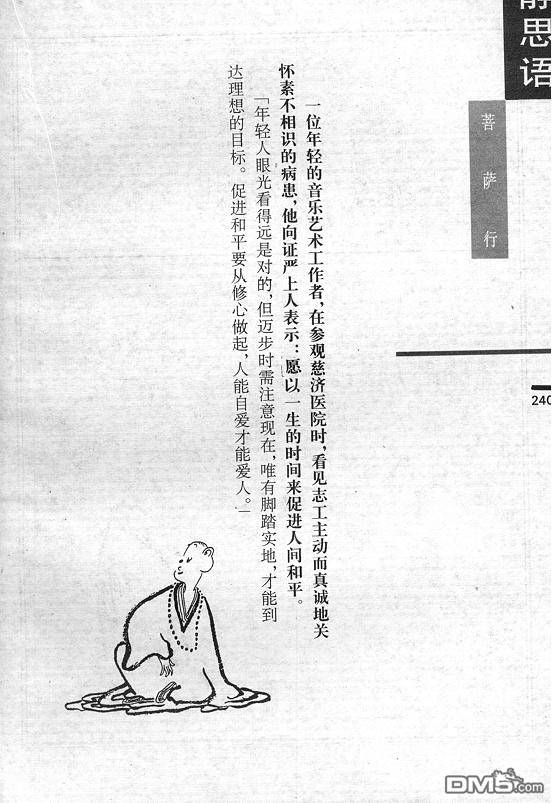 静思语
菩萨行
240
一位年轻的音乐艺术工作者，在参观慈济医院时，看见志工主动而真诚地关
怀素不相识的病患，他向证严上人表示：愿以一生的时间来促进人间和平。
「年轻人眼光看得远是对的，但迈步时需注意现在，唯有脚踏实地，才能到
达理想的目标。促进和平要从修心做起，人能自爱才能爱人。」
DM5.com